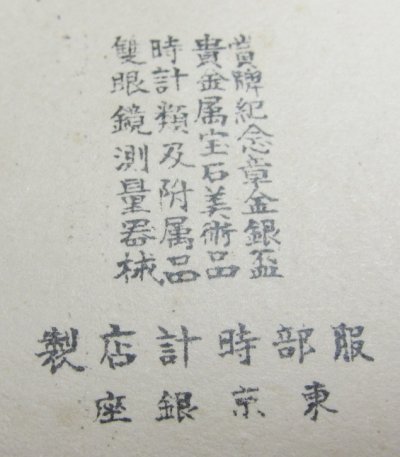 賞牌紀念章金銀盃
貴金属宝石美術品
時計類及附属品
雙眼鏡測量器械
服部時計店製
東京銀座